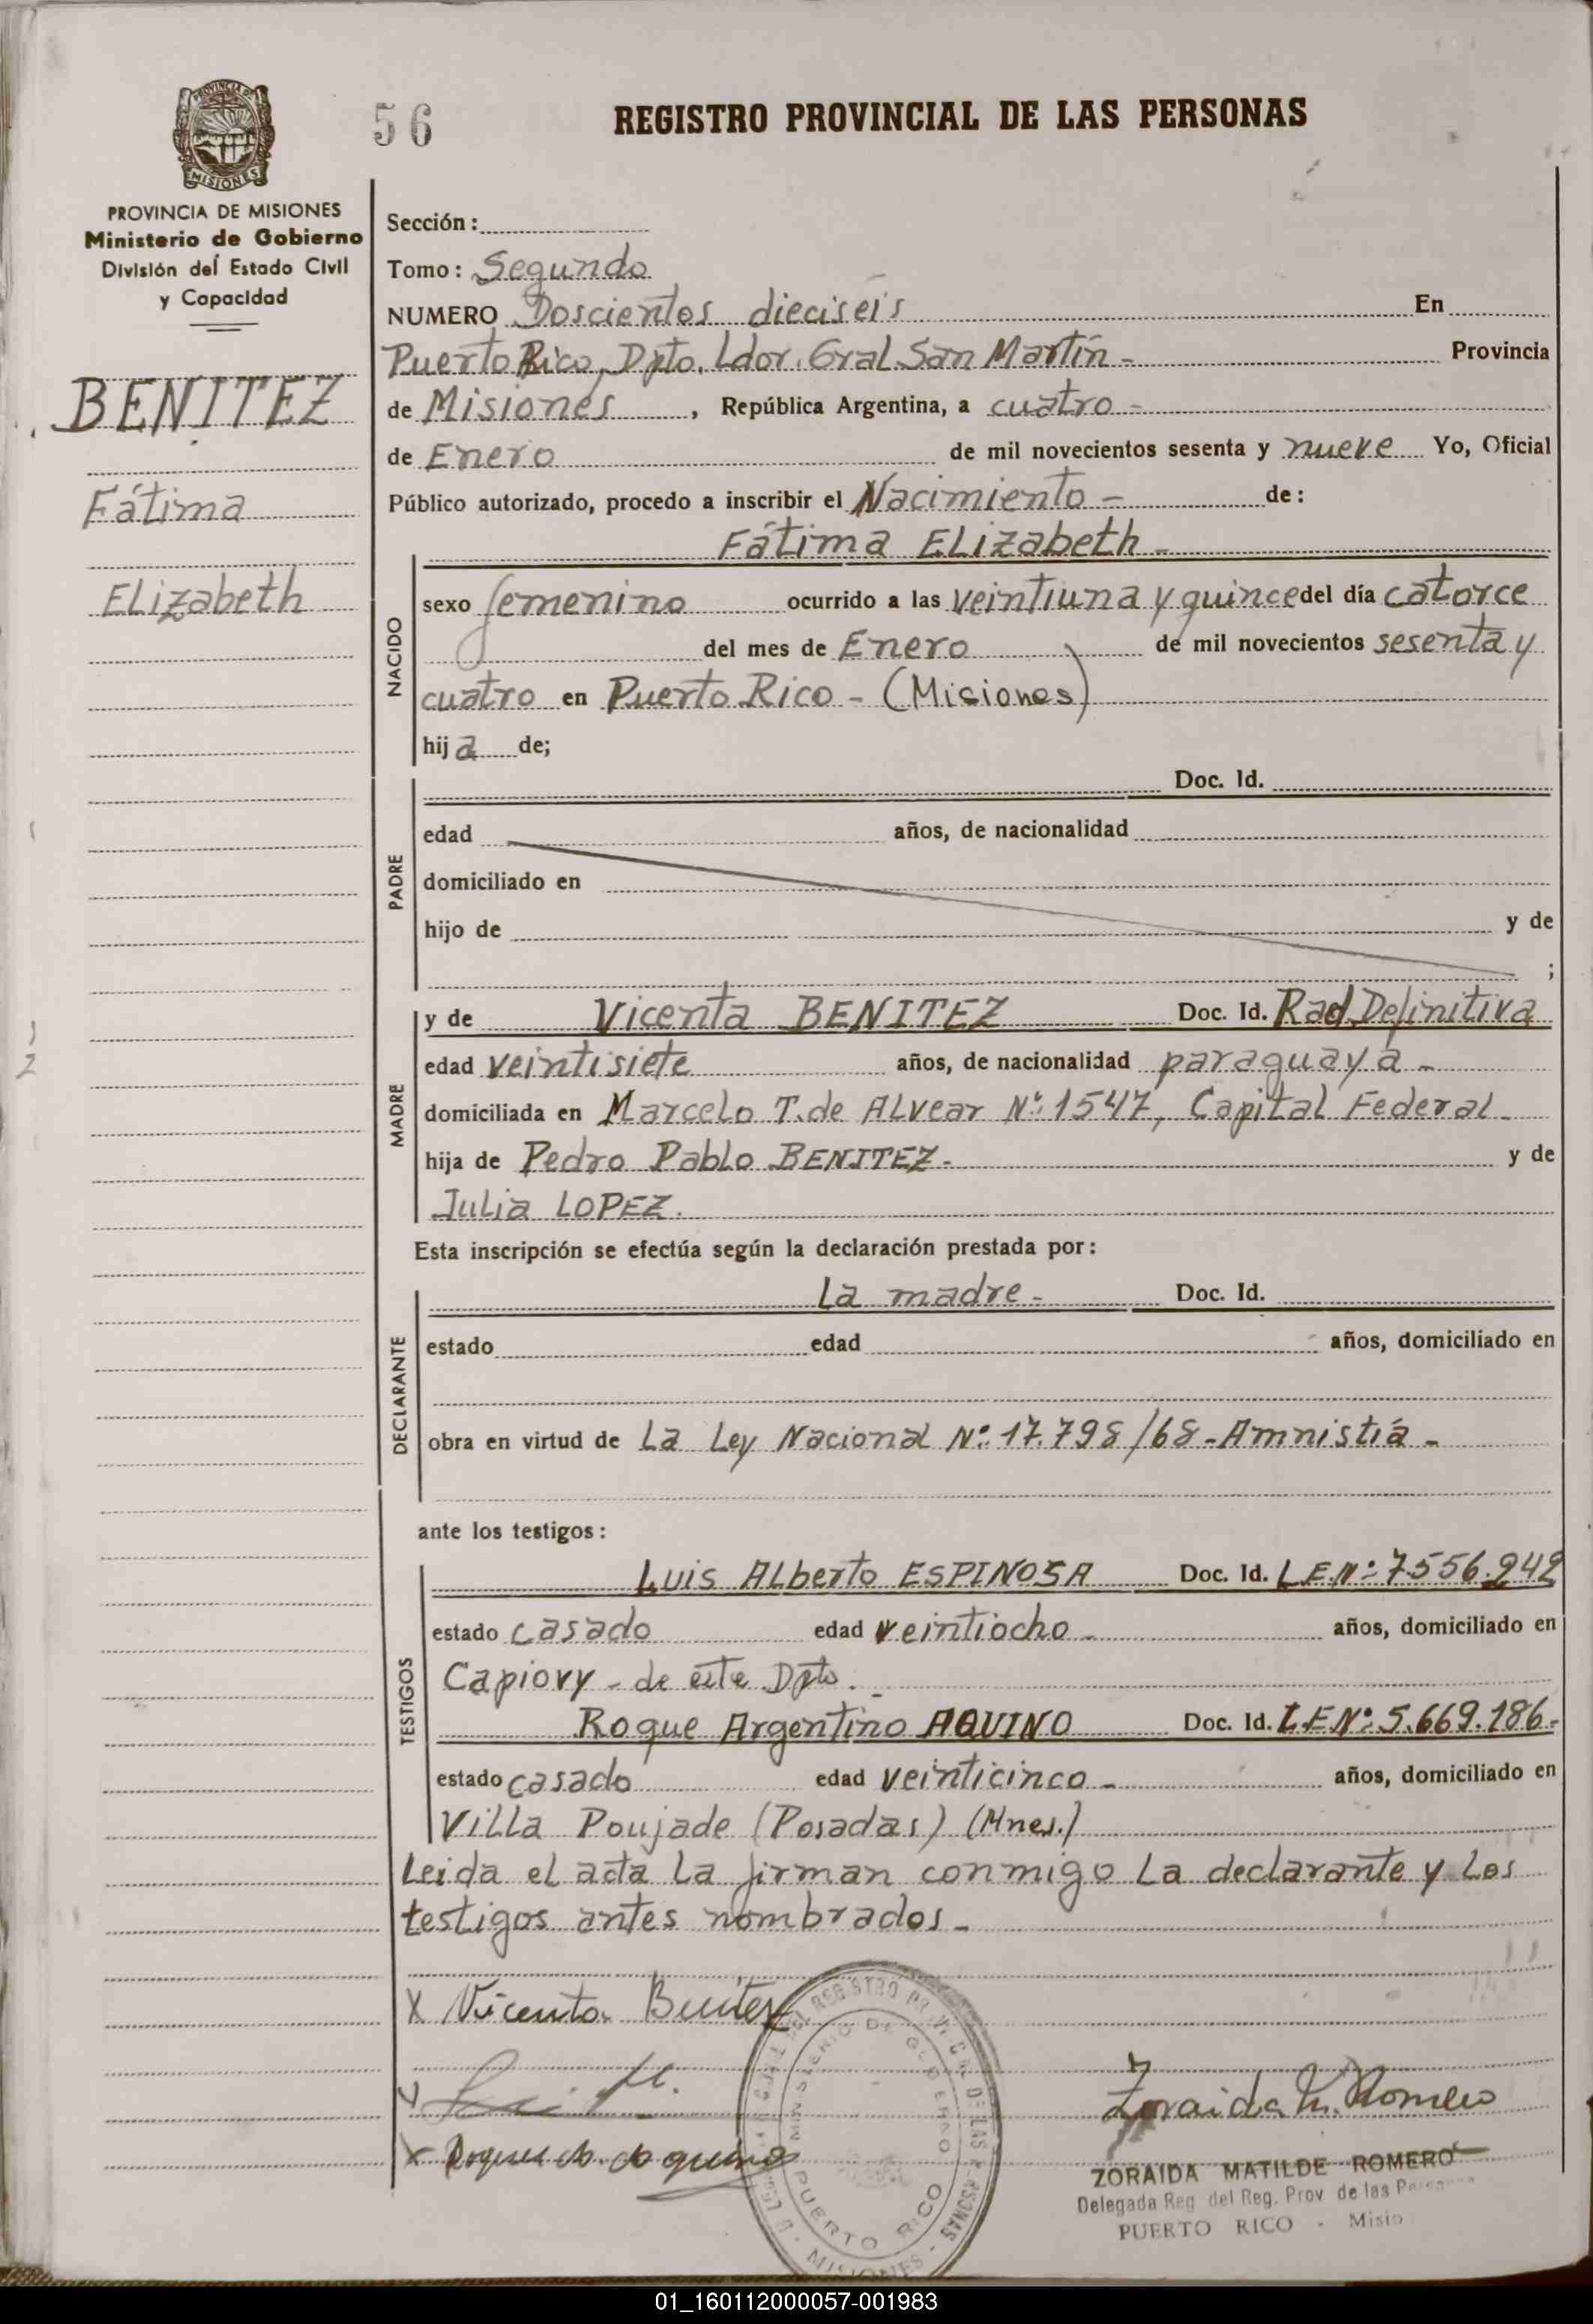 56
REGISTRO PROVINCIAL DE LAS PERSONAS
PROVINCIA DE
MISIONES
PROVINCIA DE MISIONES
Ministerio de Gobierno
División del Estado Civil
y Capacidad
BENITEZ
Fátima
Elizabeth
Sección:
Tomo: Segundo
NUMERO Doscientos dieciséis En
Puerto Rico, Dpto. Ldor. Gral. San Martín - Provincia
de Misiones, República Argentina, a cuatro -
de Enero de mil novecientos sesenta y nueve Yo, Oficial
Público autorizado, procedo a inscribir el Nacimiento - de:
Fátima Elizabeth -
NACIDO
sexo femenino ocurrido a las veintiuna y quince del día catorce
del mes de Enero de mil novecientos sesenta y
cuatro en Puerto Rico - (Misiones)
hija de;
PADRE
Doc. Id.
edad años, de nacionalidad
domiciliado en
hijo de y de
;
MADRE
y de Vicenta BENITEZ Doc. Id. Rad. Definitiva
edad veintisiete años, de nacionalidad paraguaya -
domiciliada en Marcelo T. de Alvear Nº: 1547, Capital Federal -
hija de Pedro Pablo BENITEZ - y de
Julia LOPEZ.
Esta inscripción se efectúa según la declaración prestada por:
DECLARANTE
La madre - Doc. Id.
estado edad años, domiciliado en
obra en virtud de La Ley Nacional Nº: 17.798/68 - Amnistía -
ante los testigos:
TESTIGOS
Luis Alberto ESPINOSA Doc. Id. L.E.Nº: 7.556.942
estado casado edad veintiocho - años, domiciliado en
Capiovy - de este Dpto. -
Roque Argentino AQUINO Doc. Id. L.E.Nº: 5.669.186 -
estado casado edad veinticinco - años, domiciliado en
Villa Poujade (Posadas) (Mnes.)
Leida el acta la firman conmigo la declarante y los
testigos antes nombrados -
X Vicenta Benitez
X Roque A. Aquino
Zoraida M. Romero
ZORAIDA MATILDE ROMERO
Delegada Reg. del Reg. Prov. de las
PUERTO RICO -
MINISTERIO DE GOBIERNO
PUERTO RICO
MISIONES
01_160112000057-001983